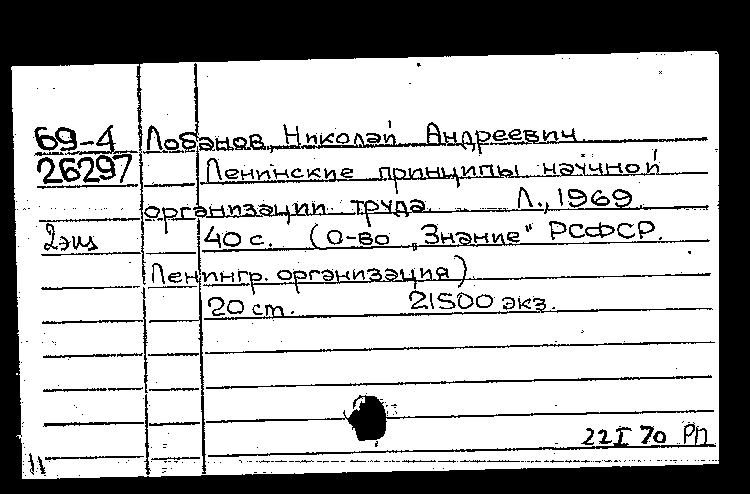 69-4 Лобанов, Николай Андреевич
26297 Ленинские принципы научной
организации труда Л., 1969
2экз 40 с. (О-во „Знание" РСФСР.
Ленингр. организация)
20 ст. 21500 экз.
22 I 70 РП